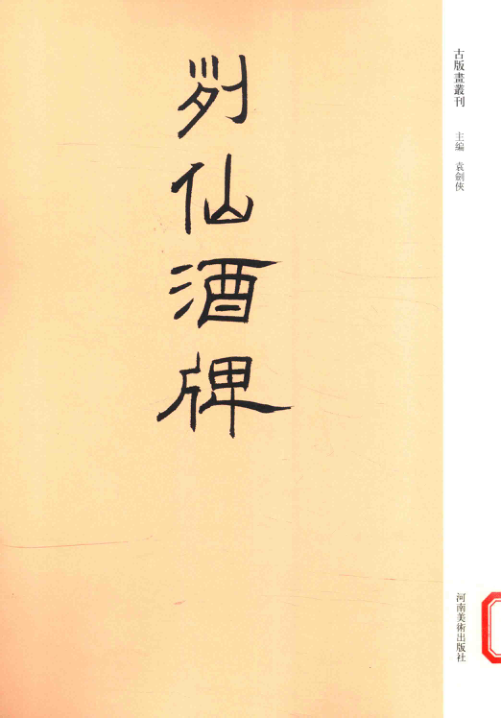 列仙酒牌
古版畫叢刊
主編 袁劍俠
河南美術出版社